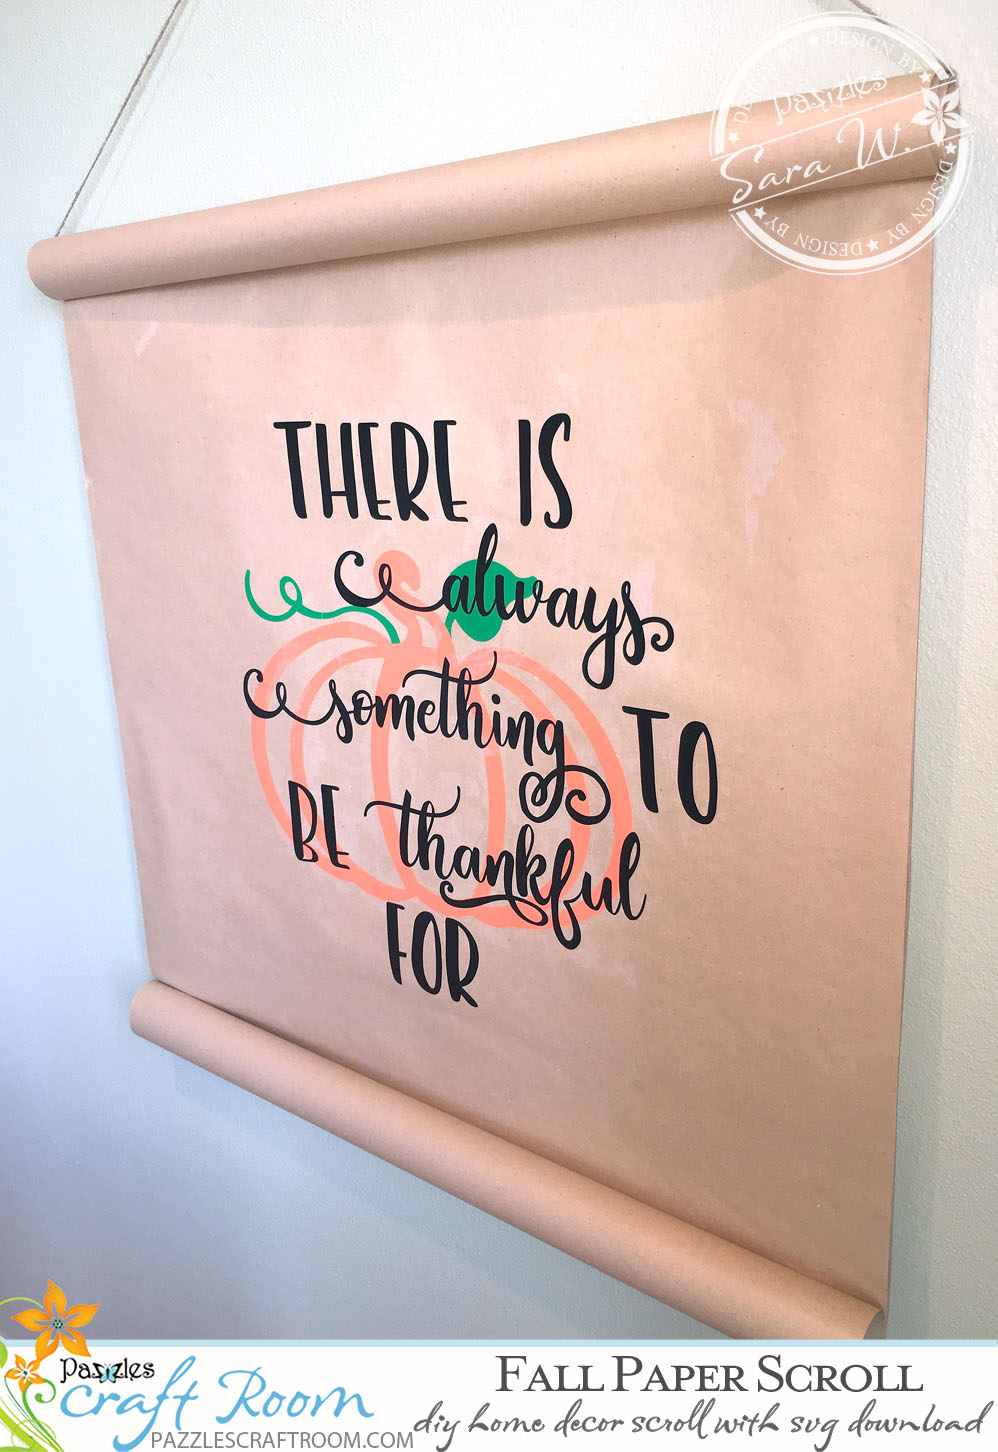 DESIGN BY ★ DESIGN BY ★ DESIGN BY ★ DESIGN BY ★
Pazzles
Sara W.
THERE IS
always
something TO
BE thankful
FOR
Pazzles
Craft Room
PAZZLESCRAFTROOM.COM
FALL PAPER SCROLL
diy home decor scroll with svg download